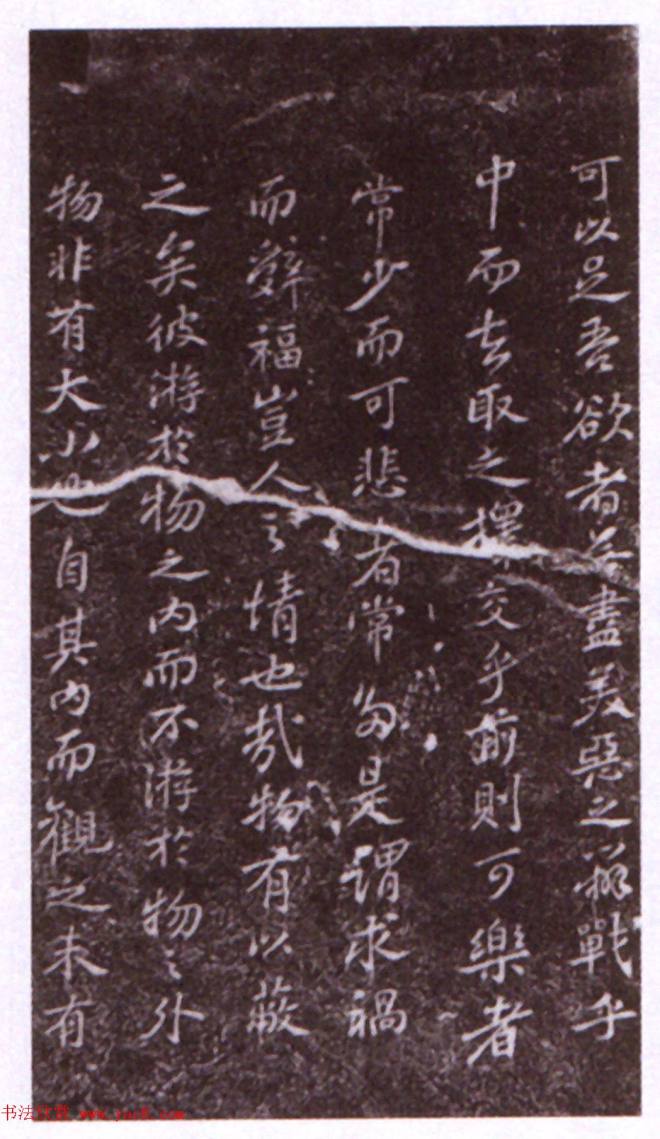 可以足吾欲者盡美惡之辨戰乎
中而去取之擇交乎前則可樂者
常少而可悲者常多是謂求禍
而辭福豈人之情也哉物有以蔽
之矣彼游於物之内而不游於物之外
物非有大小也自其内而觀之未有
书法欣赏 www.yac8.com